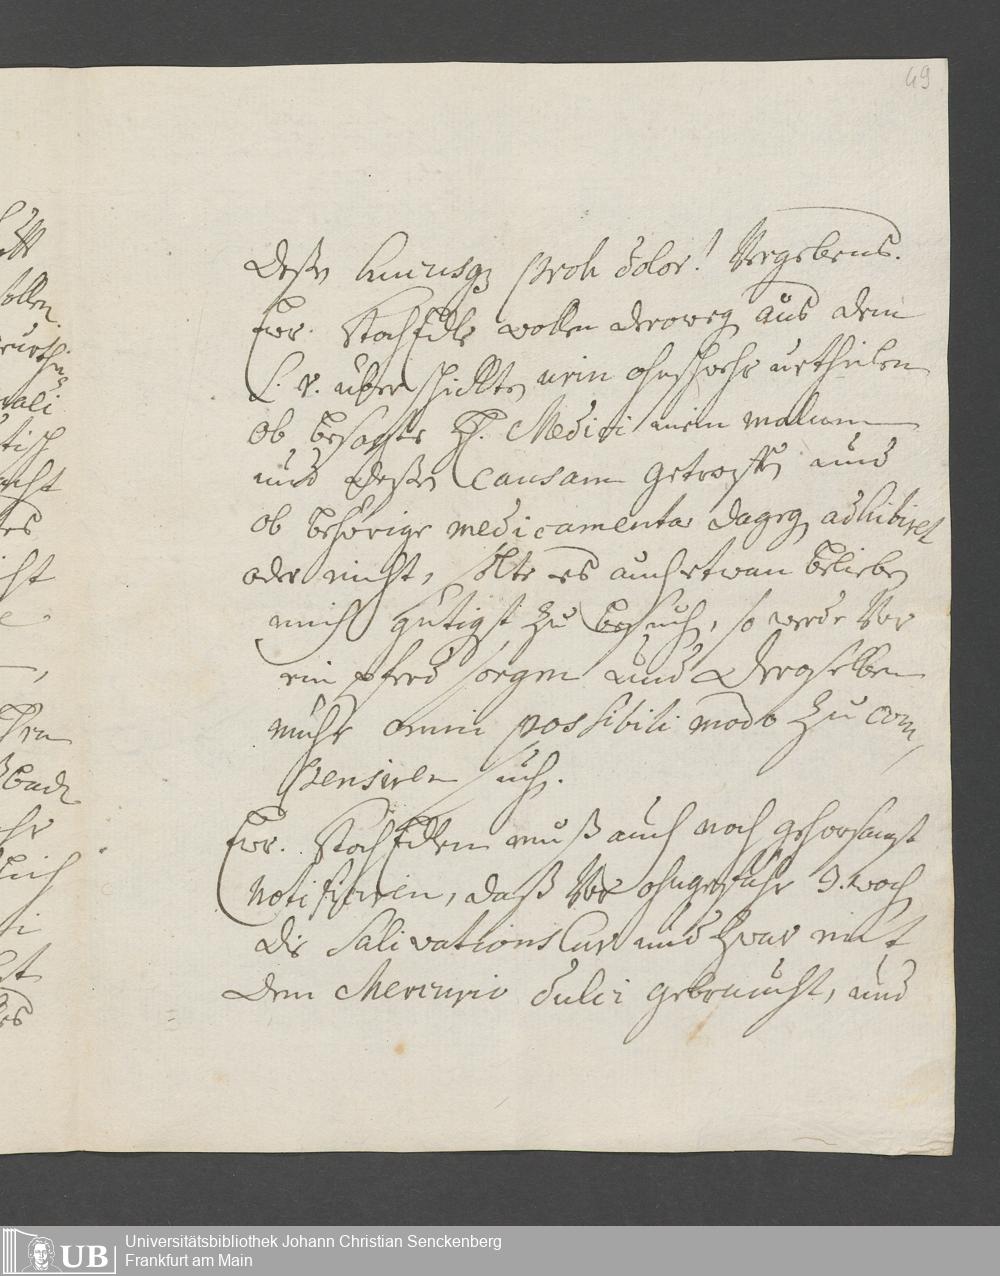 49
deßen hucusq proh dolor! Vergebens.
Ew. HochEdle wollen derowegen aus dem
l. v. überschickten urin ohnschwehr urtheilen
ob besagte H. Medici mein malum
und deßen causam getroffen und
ob behörige medicamenta dagegen adhibiret
oder nicht, solte es auch etwan belieben
mich gütigst zu besuchen, so werde Vor
ein pferd sorgen und Deroselben
mühe omni possibili modo zu com,
pensiren suchen.
Ew. HochEdlen muß auch noch gehorsamst
notificiren, daß Vor ohngefehr 9. wochen
die Salivations Cur und zwar mit
dem Mercurio dulci gebraucht, und
UB
Universitätsbibliothek Johann Christian Senckenberg
Frankfurt am Main